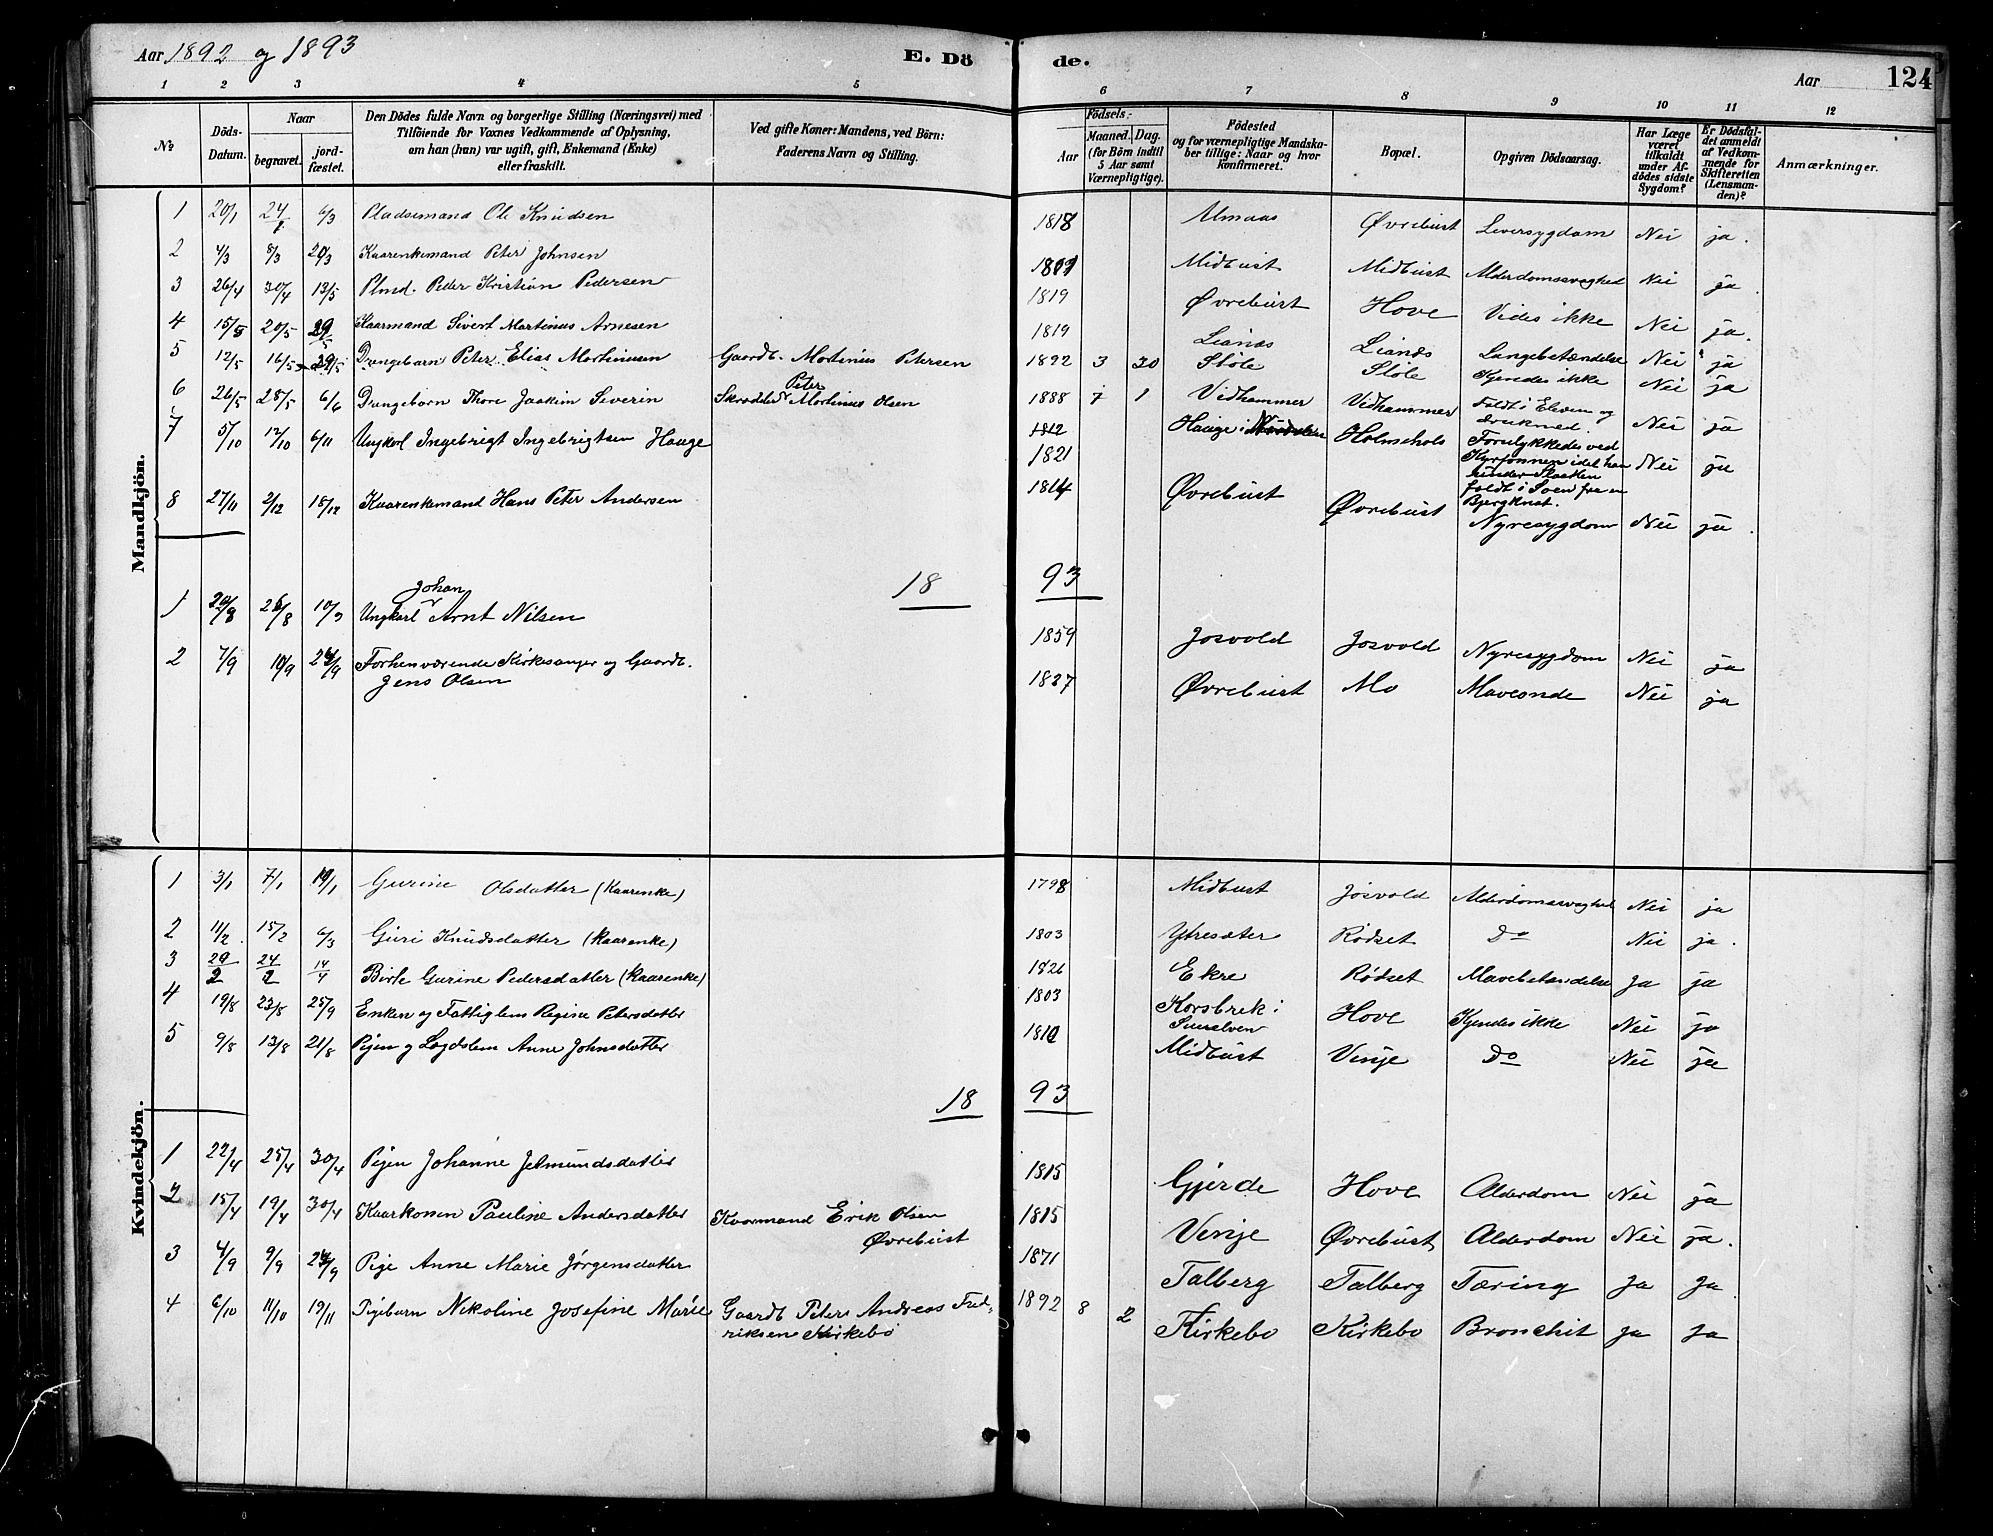 Aar 1892 og 1893
E. Dö
de.
Aar
124
1 2 3 4 5
6 7 8 9 10 11 12
№
Döds-Datum.
Naar
begravet.
jord-fæstet.
Den Dödes fulde Navn og borgerlige Stilling (Næringsvei) med
Tilföiende for Voxnes Vedkommende af Oplysning,
om han (hun) var ugift, gift, Enkemand (Enke)
eller fraskilt.
Ved gifte Koner: Mandens, ved Börn:
Faderens Navn og Stilling.
Födsels-
Aar
Maaned. Dag.
(for Börn indtil
5 Aar samt
Værnepligtige).
Födested
og for værnepligtige Mandska-
ber tillige: Naar og hvor
konfirmeret.
Bopæl.
Opgiven Dödsaarsag.
Har Læge
været
tilkaldt
under Af-
dödes sidste
Sygdom?
Er Dödsfal-
det anmeldt
af Vedkom-
mende for
Skifteretten
(Lensman-
den)?
Anmærkninger.
Mandkjön.
1 20/1 24/1 6/3 Pladsemand Ole Knudsen 1818 Almaas Øvrebust Leversygdom Nei ja.
2 4/3 8/3 20/3 Kaarenkemand Peter Johnsen Midbust Midbust Alderdomssvaghed Nei ja
3 26/4 30/4 13/5 Plmd. Peder Kristian Pedersen 1819 Øvrebust Hove Vides ikke Nei ja.
4 15/5 20/5 29/5 Kaarmand Sivert Martinus Arnesen 1819 Lianes Lianes Lungebetændelse Nei ja
5 12/5 16/5 29/5 Drengebarn Peter Elias Martinusen Gaardb. Martinus Petersen 1892 3 30 Støle Støle Kjendes ikke Nei ja
6 26/5 28/5 6/6 Drengebarn Thore Joakim Severin Skrædder Peter Martinus Olsen 1888 7 1 Vidhammer Vidhammer Faldt i Elven og drukned. Nei ja
7 5/10 12/10 6/11 Ungkarl Ingebrigt Ingebrigtsen Hauge 1821 Hauge i Holmshols Forulykkedes ved
faldt i Søen fra en
Bjergknat. Nei ja
8 27/11 2/12 18/12 Kaarenkemand Hans Peter Andersen 1814 Øvrebust Øvrebust Nyresygdom Nei ja.
18 93
1 20/8 26/8 10/9 Ungkarl Johan Arnt Nilsen 1859 Josvold Josvold Nyresygdom Nei ja
2 7/9 10/9 24/9 Forhenværende Kirkesanger og Gaardb.
Jens Olsen 1827 Øvrebust Mo Maveonde Nei ja
Kvindekjön.
1 3/1 7/1 19/1 Gurine Olsdatter (Kaarenke) 1798 Midbust Josvold Alderdomssvaghed Nei ja
2 11/2 15/2 6/3 Guri Knudsdatter (Kaarenke) 1803 Ytresæter Rødset Do Nei ja.
3 29/2 24/2 14/4 Birte Gurine Pedersdatter (Kaarenke) 1826 Ekre Rødset Mavebetændelse Ja ja
4 19/8 23/8 25/9 Enken og Fattiglem Regine Petersdatter 1803 Korsbrek i
Sunelven Hove Kjendes ikke Nei ja
5 9/8 13/8 21/8 Pigen og Lægdslem Anne Johnsdatter Midbust Vinje Do Nei ja
18 93
1 22/4 25/4 30/4 Pigen Johanne Jetmundsdatter 1815 Gjerde Hove Alderdom Nei ja
2 15/4 19/4 30/4 Kaarkonen Pauline Andersdatter Kaarmand Erik Olsen
Øvrebust 1815 Vinje Øvrebust Alderdom Nei ja.
3 4/9 9/9 24/9 Pige Anne Marie Jørgensdatter 1871 Talberg Talberg Tæring ja ja
4 6/10 11/10 19/11 Pigebarn Nikoline Josefine Marie Gaardb Peter Andreas Fred-
riksen Kirkebø 1892 8 2 Kirkebø Kirkebø Bronchit ja ja